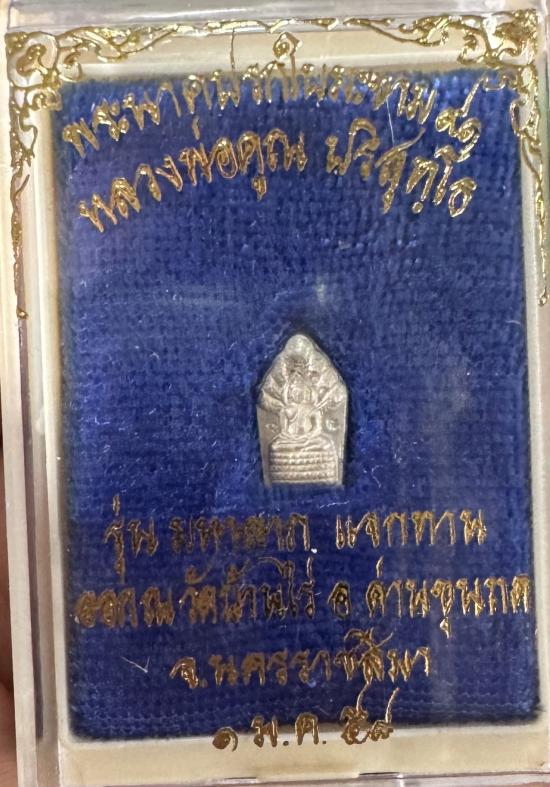 พระนาคปรกใบมะขาม ๙๑
หลวงพ่อคูณ ปริสุทฺโธ
รุ่น มหาลาภ แจกทาน
ออกณวัดบ้านไร่ อ.ด่านขุนทด
จ.นครราชสีมา
๑ ม.ค. ๕๘